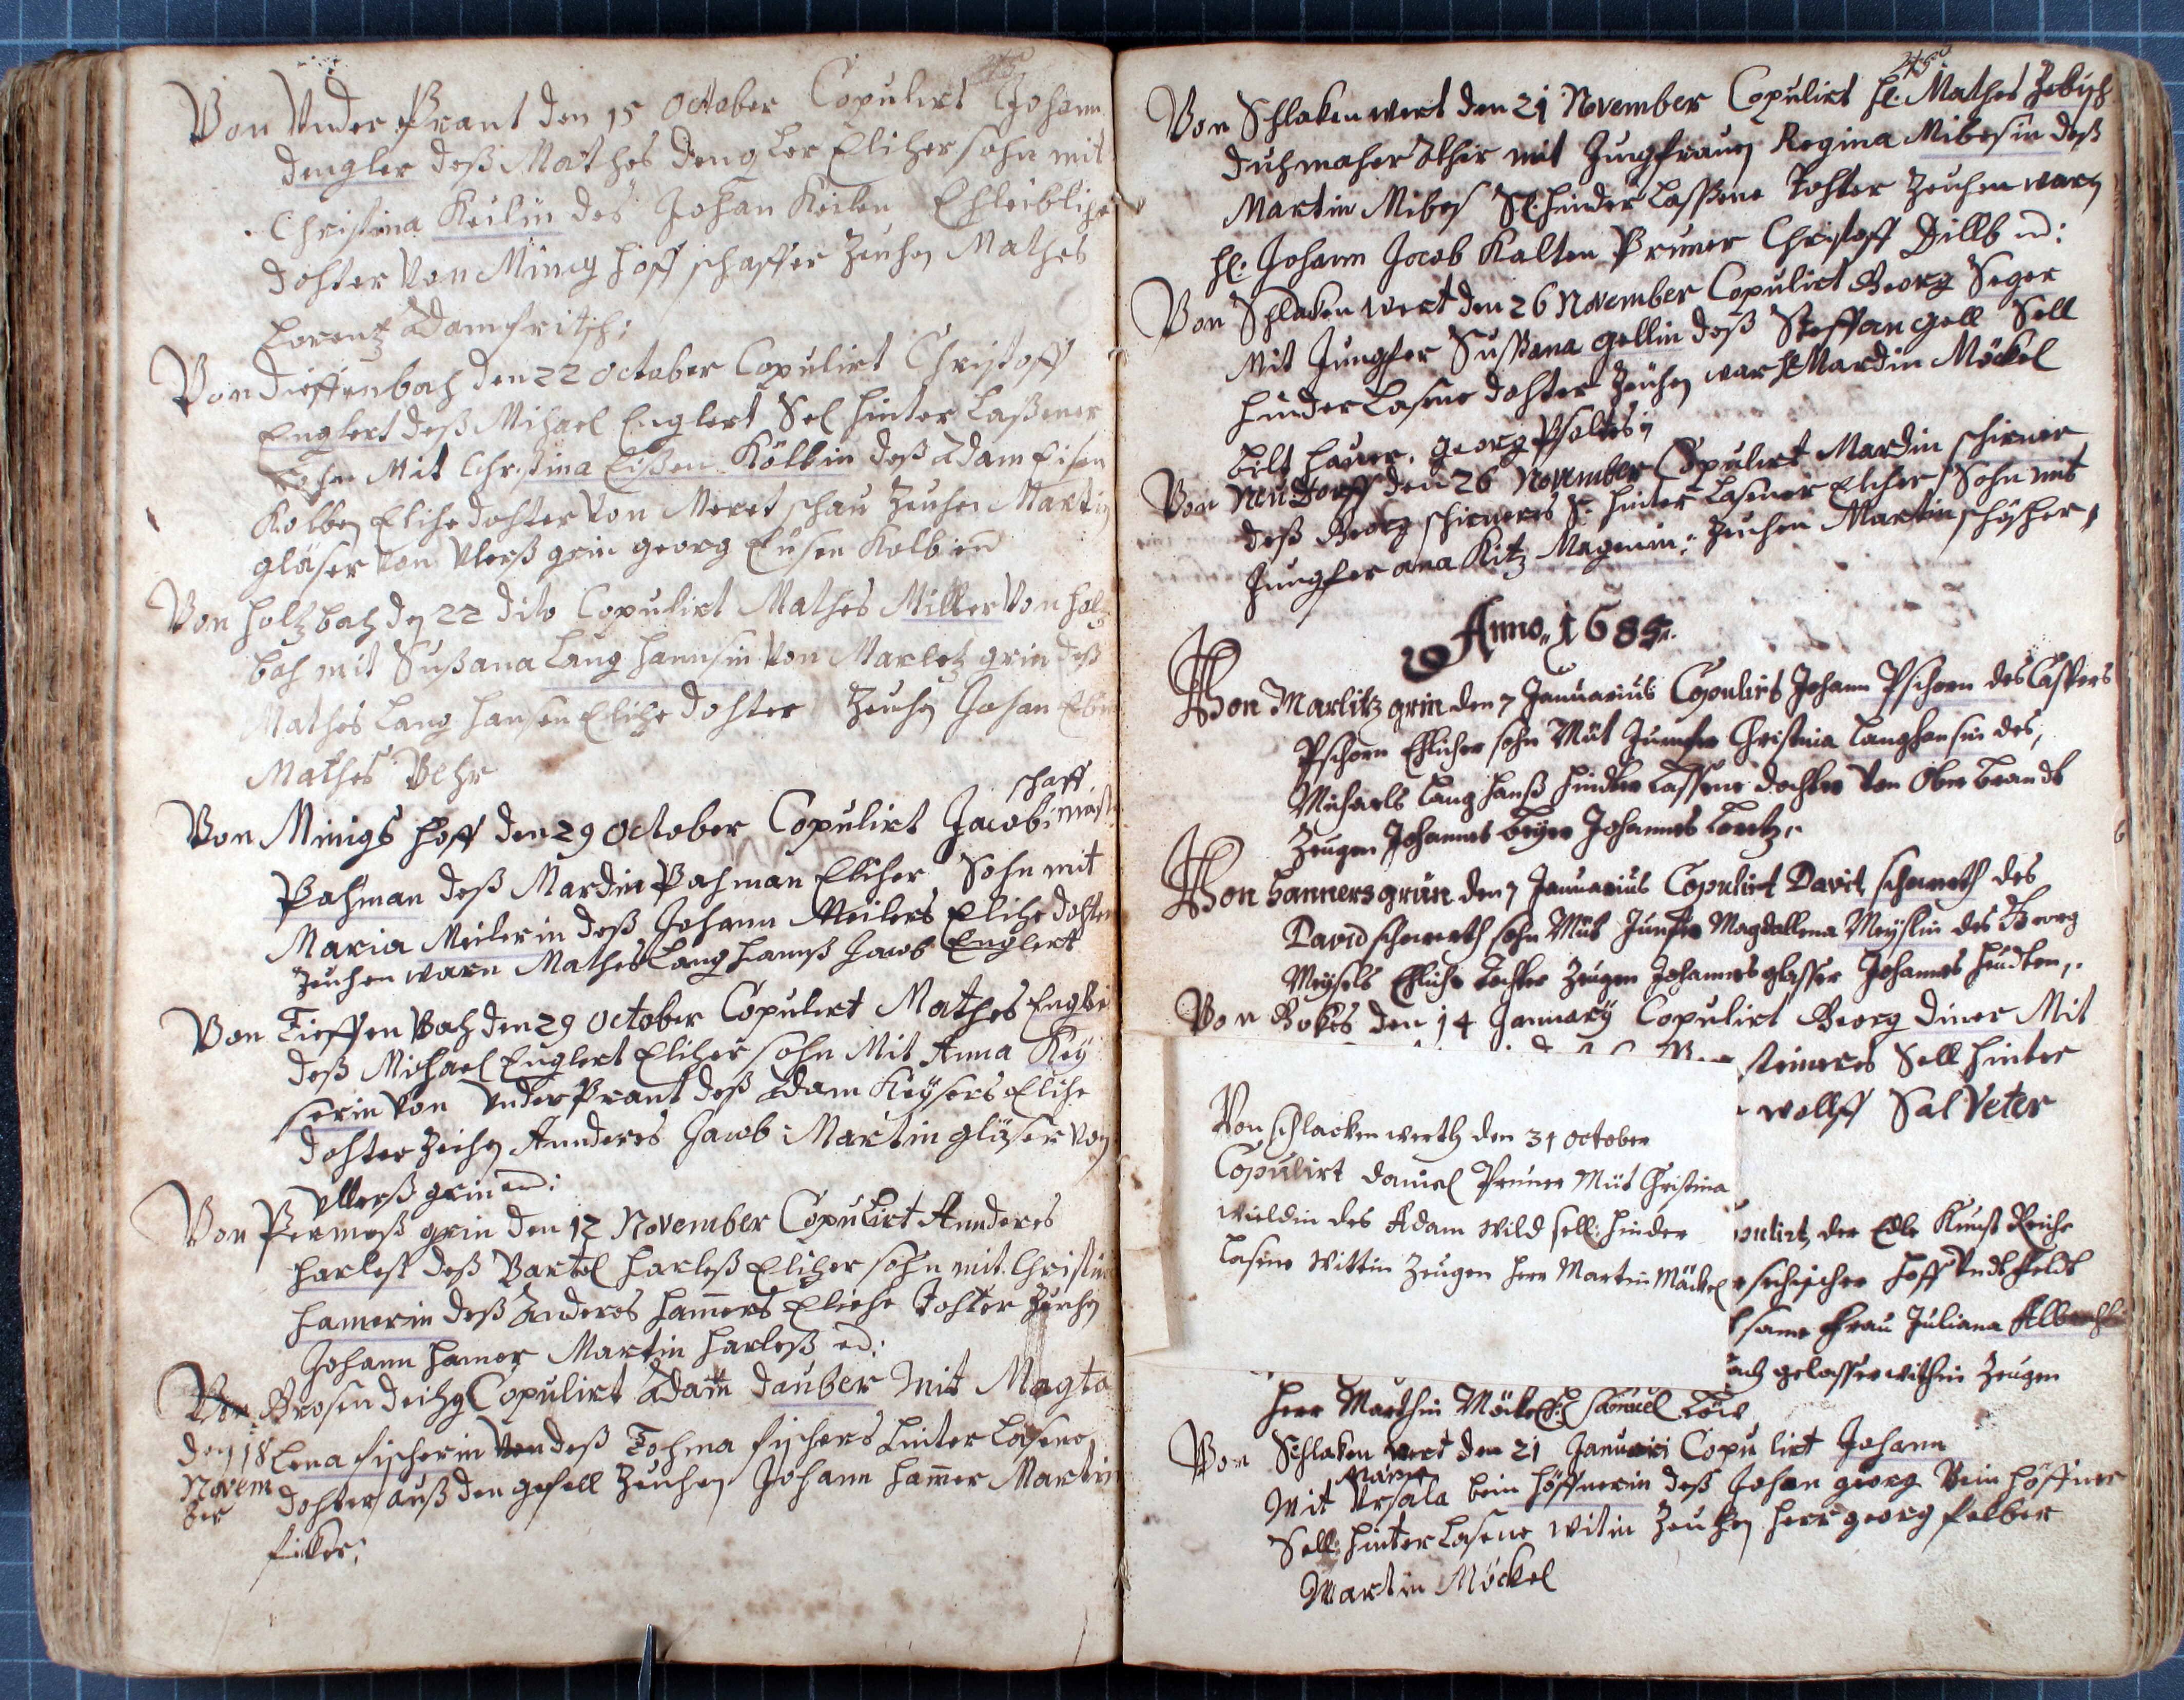 Von Vnder Prant den 15 October Copulirt Johann
dengler deß Mathes dengler Elicher sohn mit
Christina Keilin des Johan Keilen Ehleibliche
dohter Von Minig hoff schaffer Zeuhen Mathes
Lorentz Adam fritsch:
Von dieffenbach den 22 October Copulirt Christoff
Englert deß Mihael Englert Sel hinter Laßener
sohn Mit Christina Eisen Kölbin deß Adam Eisen
Kolben Elihe dohter Von Meretschau Zeuhen Martin
gläser Von Vlerß grin georg Eusen Kolb
Von holtzbach den 22 dito Copulirt Mathes Miller Von holtz
bach mit Sußana Lang hannsin Von Marletz grin deß
Mathes Lang hansen Elihe dohter Zeuhen Johan
Mathes Behr
schaff
Von Minigs hoff den 29 October Copulirt Jacob
Pahman deß Mardin Pahman Eliher Sohn mit
Maria Meilerin deß Johann Meilers Elihe dohter
Zeuhen warn Mathes Lang hannß Jacob Englert
Von Tieffen Bach den 29 October Copulirt Mathes
deß Michael Englert Eliher sohn Mit Anna Key
serin Von Vnder Prant deß Adam Keysers Elihe
dohter Zeihen Annderes Jacob: Martin gläser Von
Vllerß grin
Von Permeß grin den 12 November Copulirt Annderes
harleß deß Bartel harleß Eliher sohn mit Christina
hamerin deß Anderes hamers Eliehe dohter Zeuhen
Johann hamer Martin harleß
Von Grosen Copulirt Adam dauber Mit Magta
den 18 Lena fischerin Von deß Tohma fischers hinter Lasene
Novem dohter auß den gesell Zeuhen Johann hammer Martin
ber
Von Schlaken wert den 21 November Copulirt H: Mathes
duhmaher mit Jungfrauen Regina Mibesin deß
Martin Mibes Sel: hinder Lassene Tohter Zeuhen warn
H: Johann Jacob Kalten Pruner Christoff Dillb
Von Schlaken wert den 26 November Copulirt Georg Seger
Mit Jungfer Sußana gellin deß Steffan gell Sell
hinder Lasene dohter Zeuhen war H Mardin Möckel
bilt hauer. georg
Von Neudorff den 26 November Copulirt Mardin schirner
deß Georg schirners S: hinter Lasener Eliher Sohn mit
Jungfer ana Kitz Magerin: Zeuhen Martin
Anno 1685
Von Marlitzgrin den 7 Januarius Copulirt Johann Pschorn des Caspers
Pschorn Ehlicher sohn Mit Jumfer Christina Langhansin des,
Michaels Lang hanß hinder Lassene dochter Von Ober brandt
Zeugen Johannes beyer Johannes Lentz.
Von hannersgrün den 7 Januarius Copulirt David des
David sohn Mit Jumfer Magdallena Meyslin des Georg
Meysels Ehliche tochter Zeugen Johannes glasser Johannes
Von Bokes den 14 January Copulirt Georg diner Mit
steineres Sell hinter
wolff Sal Veter
Von schlackenwerth den 31 October
Copulirt Daniel Pruner Mit Christina
wildin des Adam wild sell: hinder
lasene Wittin Zeugen herr Martin Mäckel
der Edle Kunst Reiche
hoff Vndt feldt
same frau Juliana
gelassne within Zeugen
herr Marthin Möckel Samuel
Von Schlaken wert den 21 Januari Copulirt Johann
Maria
Mit Vrsala bein höffnerin deß Johan georg Bein höffner
Sell: hinter Lasene witin Zeuhen herr georg felber
Martin Möckel